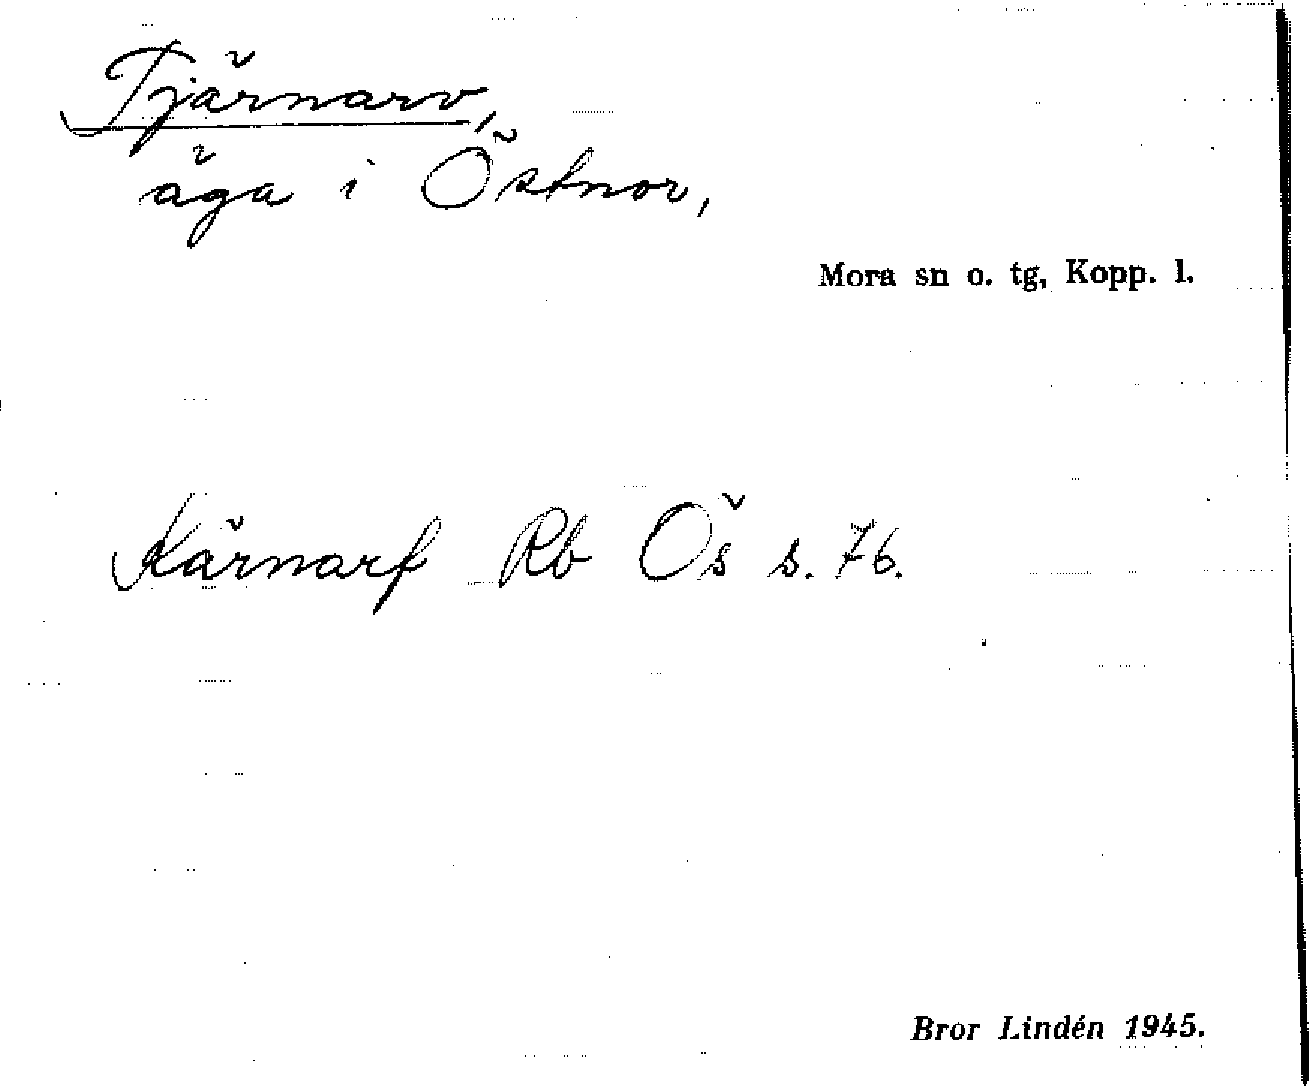 Tjärnarv,
äga i Östnor,
Mora sn o. tg, Kopp. l.
Kärnarf Rb Ös s. 76.
Bror Lindén 1945.